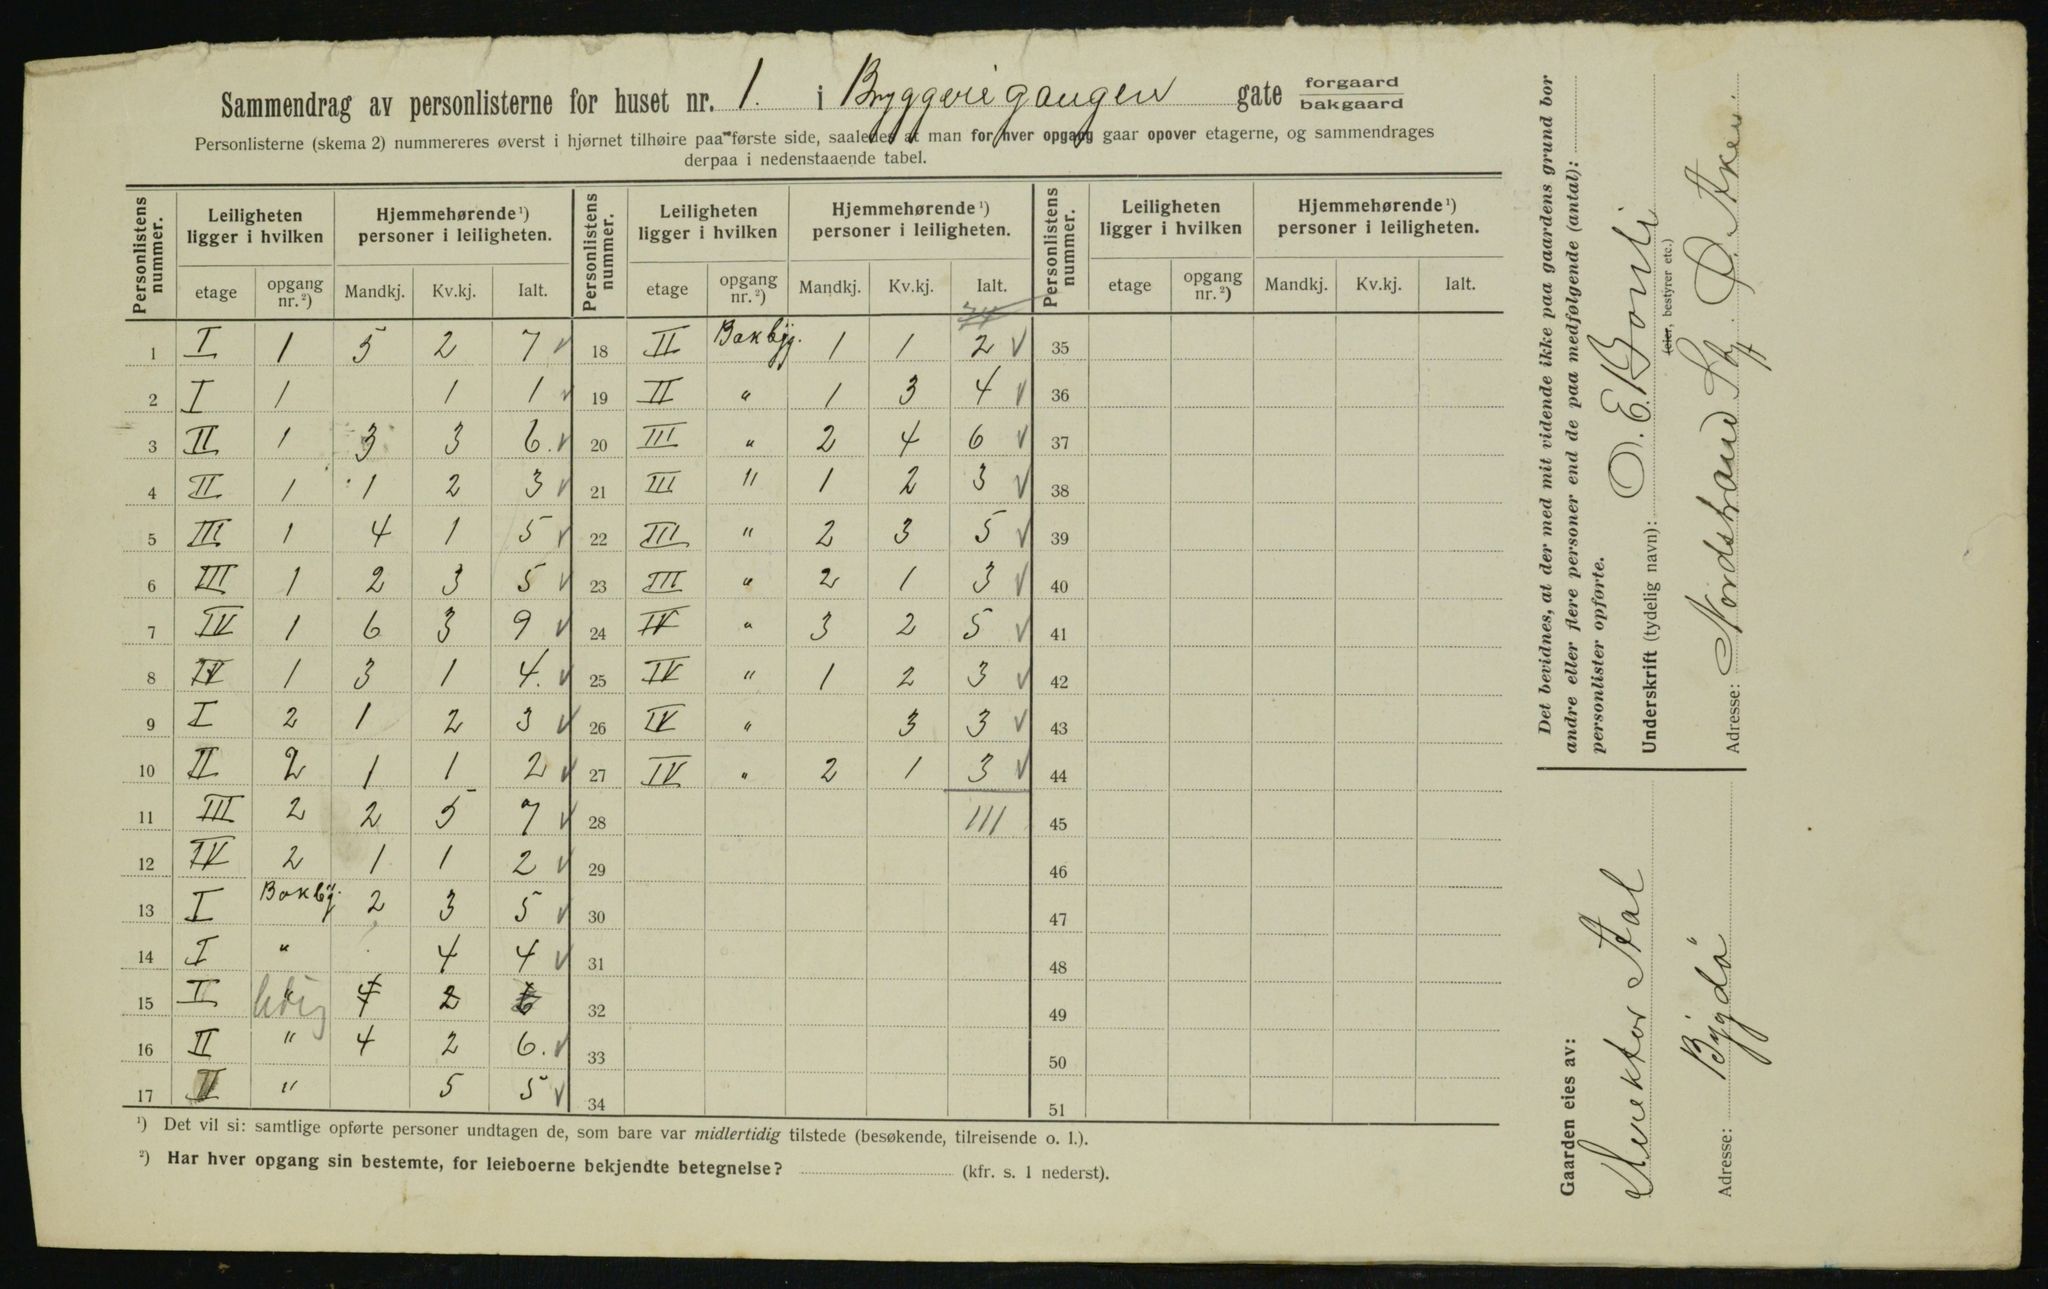 Sammendrag av personlisterne for huset nr. 1. i Bryggerigangen gate forgaard
bakgaard
Personlisterne (skema 2) nummereres øverst i hjørnet tilhøire paa første side, saaledes at man for hver opgang gaar opover etagerne, og sammendrages
derpaa i nedenstaaende tabel.
Personlistens nummer. Leiligheten ligger i hvilken Hjemmehørende ¹) personer i leiligheten. Personlistens nummer. Leiligheten ligger i hvilken Hjemmehørende ¹) personer i leiligheten. Personlistens nummer. Leiligheten ligger i hvilken Hjemmehørende ¹) personer i leiligheten.
etage opgang nr. ²) Mandkj. Kv.kj. Ialt. etage opgang nr. ²) Mandkj. Kv.kj. Ialt. etage opgang nr. ²) Mandkj. Kv.kj. Ialt.
74
1 I 1 5 2 7 18 II Bakbyg. 1 1 2 35
2 I 1 1 1 19 II " 1 3 4 36
3 II 1 3 3 6. 20 III " 2 4 6 37
4 II 1 1 2 3 21 III " 1 2 3 38
5 III 1 4 1 5 22 III " 2 3 5 39
6 III 1 2 3 5 23 III " 2 1 3 40
7 IV 1 6 3 9 24 IV " 3 2 5 41
8 IV 1 3 1 4. 25 IV " 1 2 3 42
9 I 2 1 2 3 26 IV " 3 3 43
10 II 2 1 1 2 27 IV " 2 1 3 44
11 III 2 2 5 7 28 111 45
12 IV 2 1 1 2 29 46
13 I Bakbyg. 2 3 5 30 47
14 I " 4 4 31 48
15 I " ledig 4 2 6 32 49
16 II " 4 2 6. 33 50
17 II " 5 5 34 51
¹) Det vil si: samtlige opførte personer undtagen de, som bare var midlertidig tilstede (besøkende, tilreisende o. l.).
²) Har hver opgang sin bestemte, for leieboerne bekjendte betegnelse? (kfr. s. 1 nederst).
Det bevidnes, at der med mit vidende ikke paa gaardens grund bor
andre eller flere personer end de paa medfølgende (antal):
personlister opførte.
Underskrift (tydelig navn): O. E. Bonli
leier, bestyrer etc.)
Adresse: Nordstrand St. Ø. Aker.
Gaarden eies av:
Direktør Stal
Adresse: Bygdö